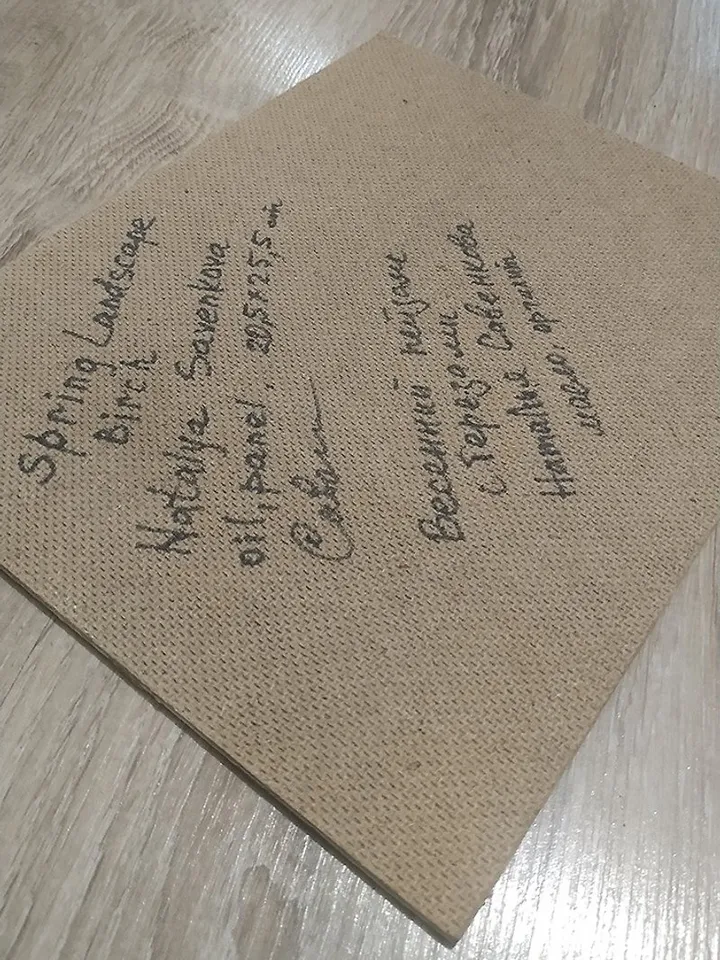 Spring Landscape
Birch
Natalya Savenkova
oil, panel. 20,5x25,5 cm
Савен
Весенний пейзаж
с березами
Наталья Савенкова
масло, оргалит